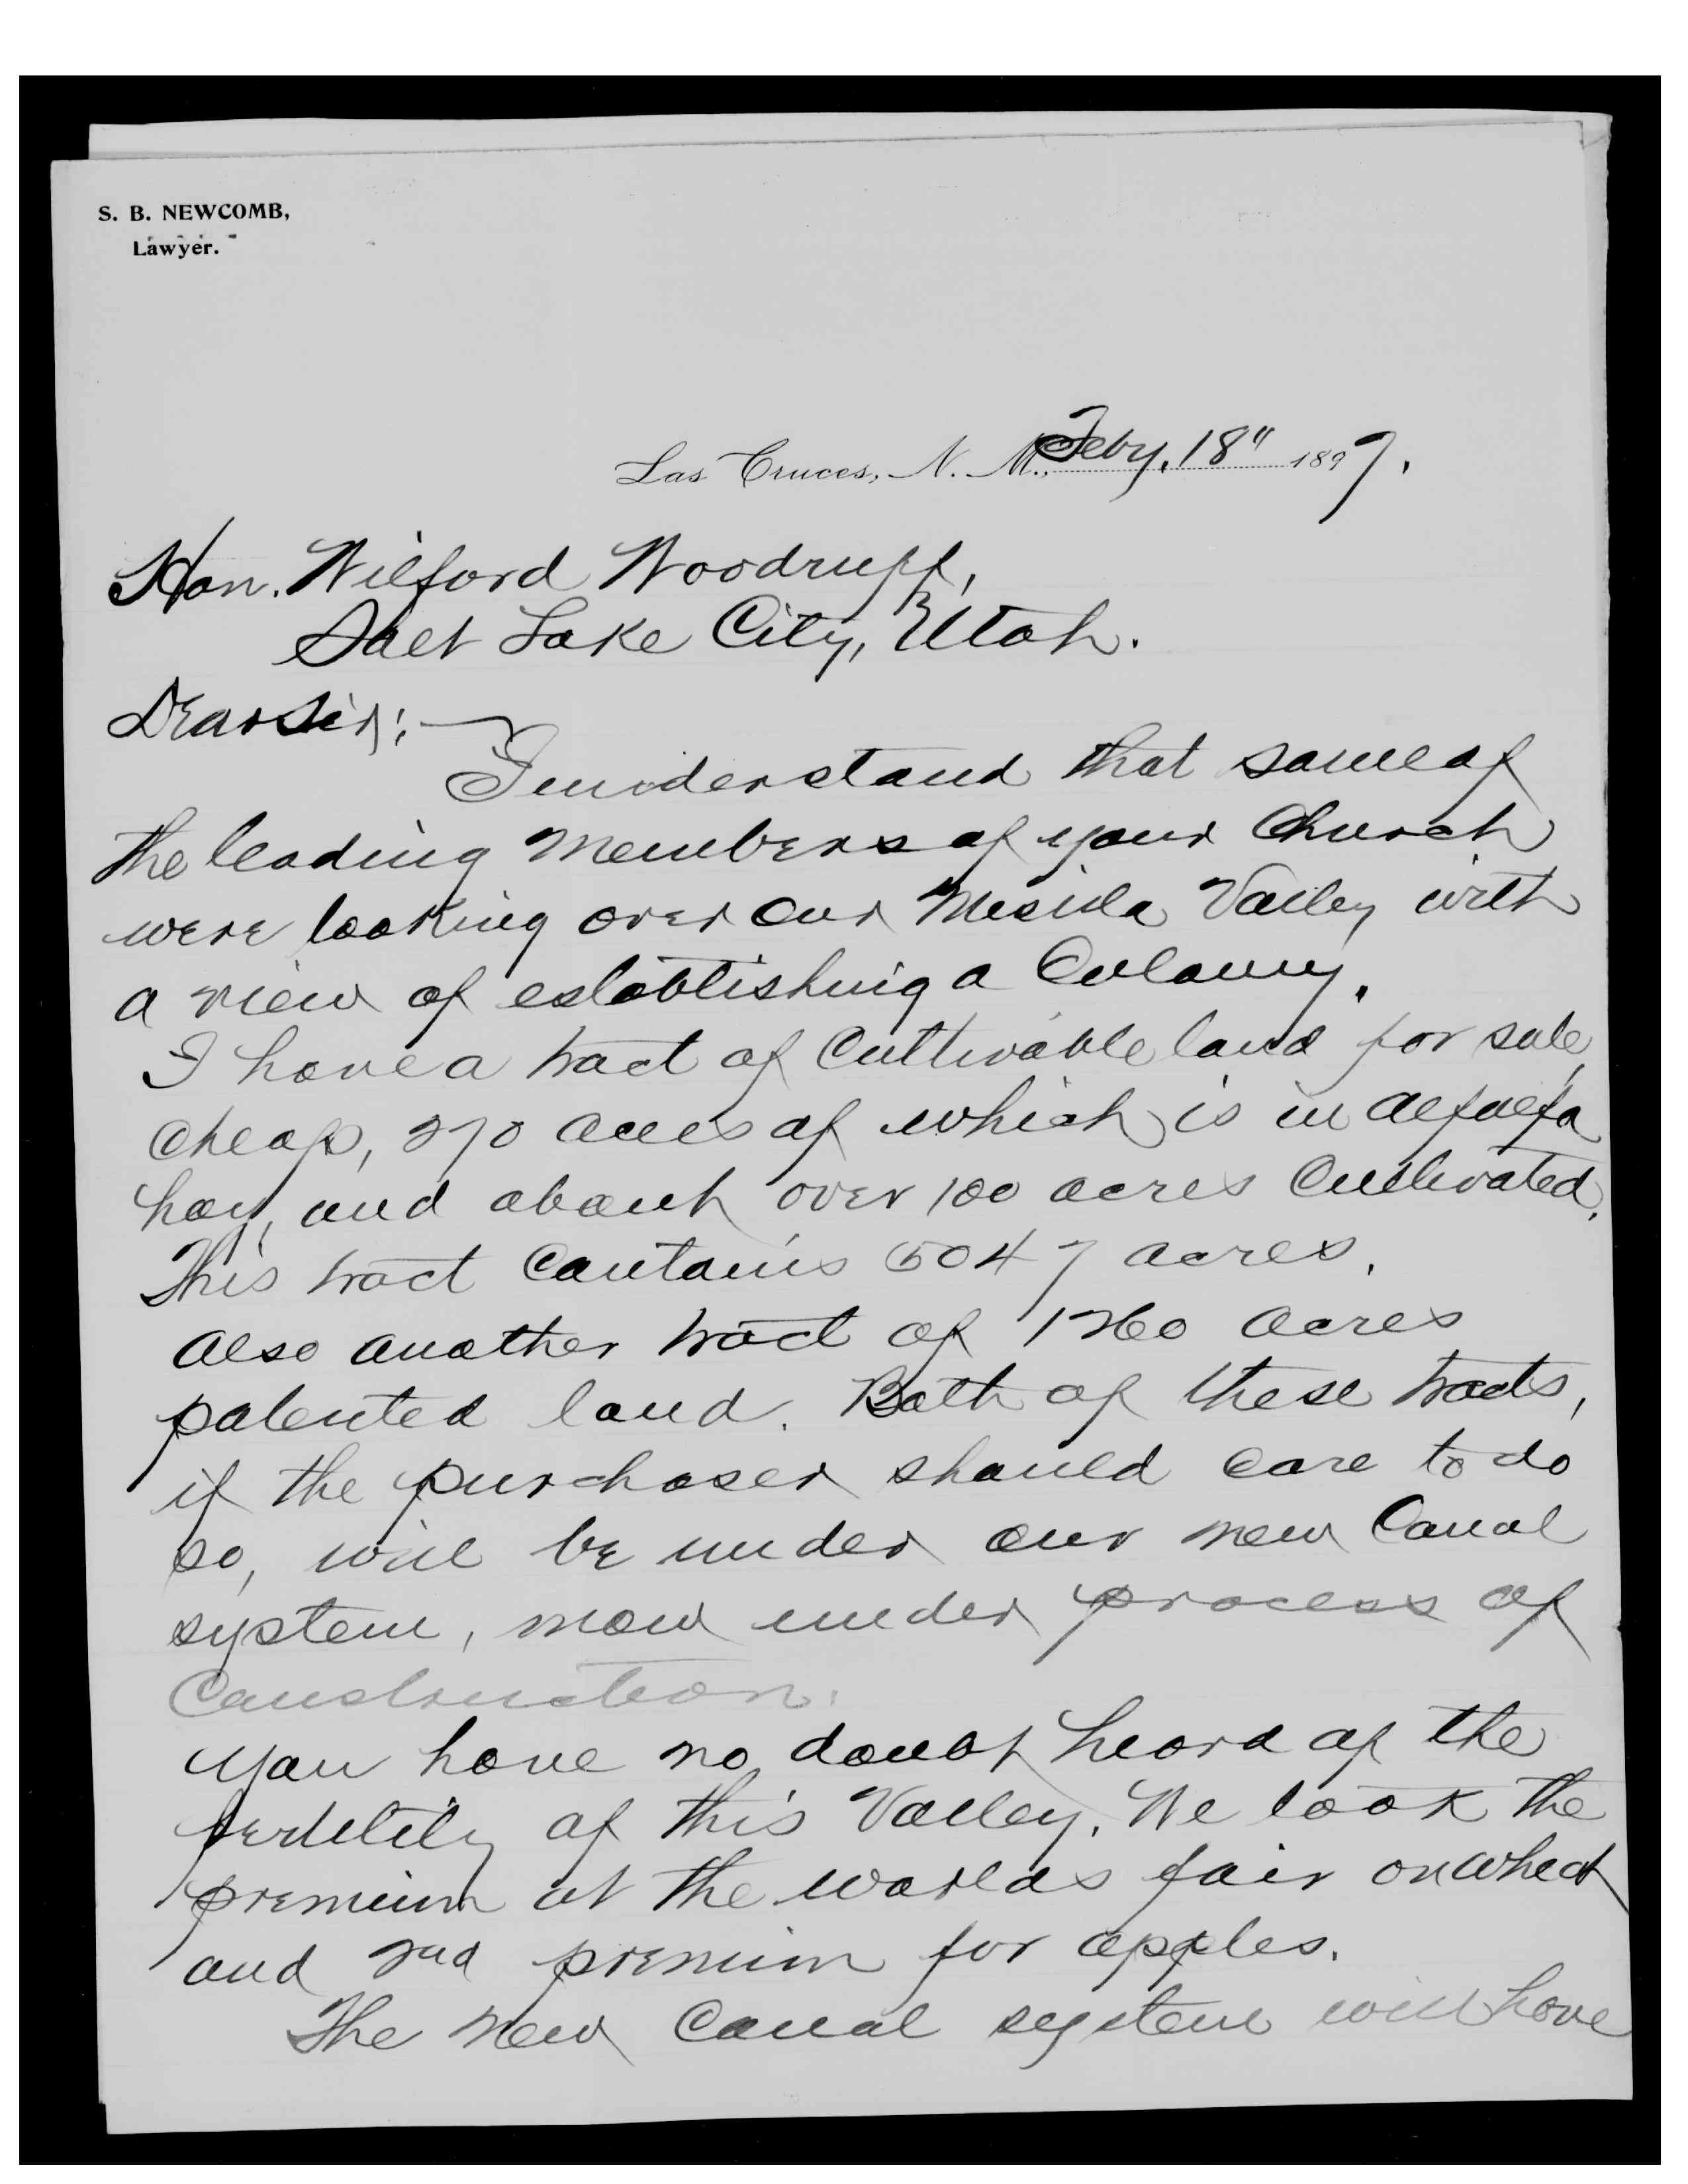 S. B. NEWCOMB,
Lawyer.
Las Cruces, N. M., Feby. 18" 1897.
Hon. Wilford Woodruff,
Salt Lake City, Utah.
Dear Sir;
I understand that some of
the leading members of your Church
were looking over our Mesilla Valley with
a view of establishing a Colony.
I have a tract of Cultivable land for sale,
cheap, 270 acres of which is in alfalfa
hay, and about over 100 acres Cultivated.
This tract Contains 5047 acres.
Also another tract of 1260 acres
patented land. Both of these tracts,
if the purchaser should care to do
so, will be under our new Canal
system, now under process of
Construction.
You have no doubt heard of the
fertility of this Valley. We took the
premium at the worlds fair on wheat
and 2nd premium for apples.
The new Canal system will have